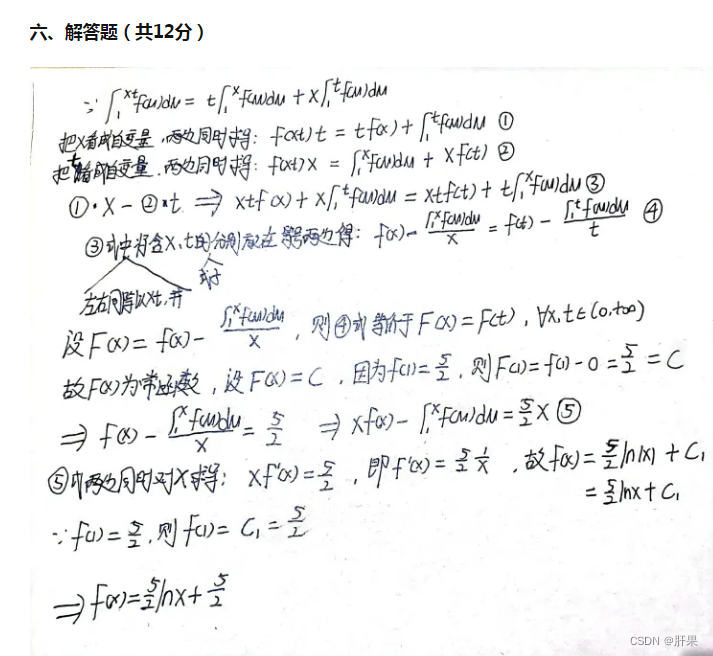 六、解答题（共12分）
∵ ∫₁^{xt} f(u)du = t∫₁^x f(u)du + x∫₁^t f(u)du
把x看成自变量，两边同时求导： f(xt)t = tf(x) + ∫₁^t f(u)du ①
把t看成自变量，两边同时求导： f(xt)x = ∫₁^x f(u)du + xf(t) ②
①·x - ②·t ⇒ xtf(x) + x∫₁^t f(u)du = xtf(t) + t∫₁^x f(u)du ③
③式中将含x,t的分别放在等号两边得： f(x) - ∫₁^x f(u)du / x = f(t) - ∫₁^t f(u)du / t ④
左右同除以xt,并
式子
设F(x) = f(x) - ∫₁^x f(u)du / x ，则④式等价于F(x) = F(t)，∀x,t∈(0,+∞)
故F(x)为常函数，设F(x) = C，因为f(1) = 5/2，则F(1) = f(1) - 0 = 5/2 = C
⇒ f(x) - ∫₁^x f(u)du / x = 5/2 ⇒ xf(x) - ∫₁^x f(u)du = 5/2 x ⑤
⑤式两边同时对x求导： xf'(x) = 5/2，即f'(x) = 5/2 1/x，故f(x) = 5/2 ln|x| + C₁
= 5/2 lnx + C₁
∵ f(1) = 5/2，则f(1) = C₁ = 5/2
⇒ f(x) = 5/2 lnx + 5/2
CSDN @肝果